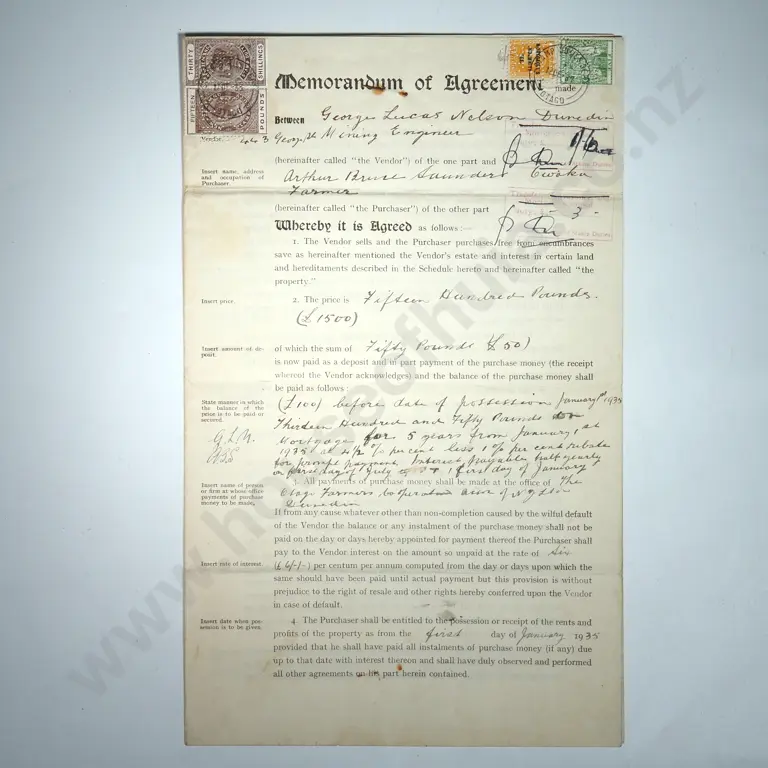 THIRTY SHILLINGS
FIFTEEN POUNDS
OTAGO
Memorandum of Agreement made
Between George Lucas Nelson Dunedin
George St Mining Engineer
(hereinafter called "the Vendor") of the one part and
Insert name, address and occupation of Purchaser.
Arthur Bruce Saunders Owaka
Farmer
(hereinafter called "the Purchaser") of the other part
Whereby it is Agreed as follows:—
1. The Vendor sells and the Purchaser purchases free from encumbrances
save as hereinafter mentioned the Vendor's estate and interest in certain land
and hereditaments described in the Schedule hereto and hereinafter called "the
property."
Insert price.
2. The price is Fifteen Hundred Pounds.
(£1500)
Insert amount of deposit.
of which the sum of Fifty Pounds (£50)
is now paid as a deposit and in part payment of the purchase money (the receipt
whereof the Vendor acknowledges) and the balance of the purchase money shall
be paid as follows:
State manner in which the balance of the price is to be paid or secured.
(£100) before date of possession January 1st 1935
Thirteen Hundred and Fifty Pounds on
Mortgage for 5 years from January 1st
1935 at 4½% per cent less ½% per cent rebate
for prompt payment Interest payable half yearly
on first day of July & first day of January
G.L.N.
ABS
Insert name of person or firm at whose office payments of purchase money to be made.
3. All payments of purchase money shall be made at the office of The
Otago Farmers Co-operative Assn of N.Z. Ltd
Dunedin
If from any cause whatever other than non-completion caused by the wilful default
of the Vendor the balance or any instalment of the purchase money shall not be
paid on the day or days hereby appointed for payment thereof the Purchaser shall
pay to the Vendor interest on the amount so unpaid at the rate of Six
Insert rate of interest.
(£6/-/-) per centum per annum computed from the day or days upon which the
same should have been paid until actual payment but this provision is without
prejudice to the right of resale and other rights hereby conferred upon the Vendor
in case of default.
Insert date when possession is to be given.
4. The Purchaser shall be entitled to the possession or receipt of the rents and
profits of the property as from the first day of January 1935
provided that he shall have paid all instalments of purchase money (if any) due
up to that date with interest thereon and shall have duly observed and performed
all other agreements on his part herein contained.